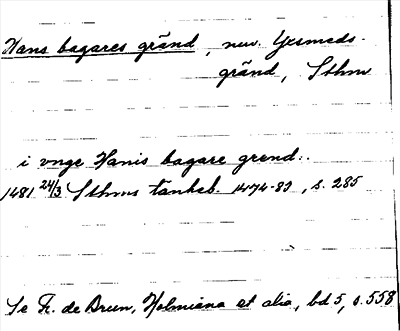 Hans bagares gränd, nuv. Yxsmeds-
gränd, Sthm
i vnge Hanis bagare grend..
1481 24/3 Sthms tänkeb. 1474-83, s. 285
Se Fr. de Brun, Holmiana et alia, bd 5, s. 558